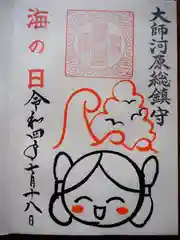 大師河原総鎮守
海の日
令和四年七月十八日